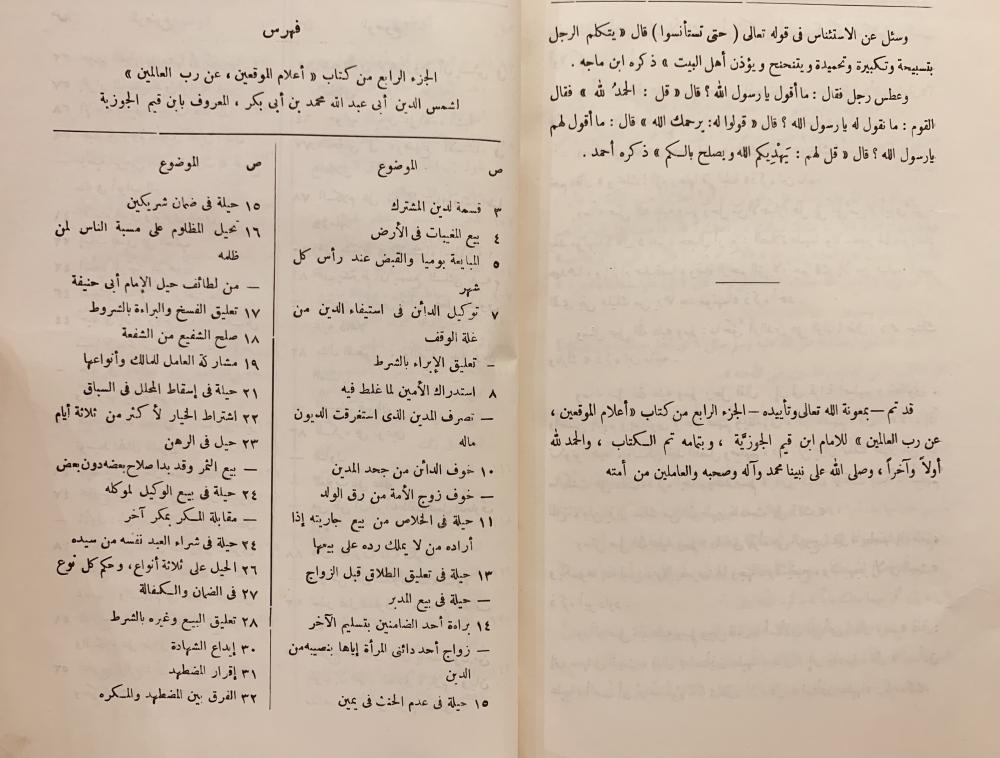 وسئل عن الاستئناس فى قوله تعالى ( حتى تستأنسوا ) قال « يتكلم الرجل
بتسبيحة وتكبيرة وتحميدة ويتنحنح و يؤذن أهل البيت » ذكره ابن ماجه .
وعطس رجل فقال : ما أقول يا رسول الله ؟ قال « قل : الحمدُ لله » فقال
القوم : ما نقول له يا رسول الله ؟ قال « قولوا له : يرحمك الله » قال : ما أقول لهم
يا رسول الله ؟ قال « قل لهم : يَهْدِيكم الله و يصلح بالكم » ذكره أحمد .
قد تم — بمعونة الله تعالى وتأييده — الجزء الرابع من كتاب « أعلام الموقعين ،
عن رب العالمين » للامام ابن قيم الجوزيَّة ، وبتمامه تم الكتاب ، والحمد لله
أولاً وآخراً ، وصلى الله على نبينا محمد وآله وصحبه والعاملين من أمته
فهرس
الجزء الرابع من كتاب « أعلام الموقعين ، عن رب العالمين »
اشمس الدين أبى عبد الله محمد بن أبى بكر ، المعروف بابن قيم الجوزية
ص الموضوع
٣ قسمة لدين المشترك
٤ بيع المغيبات فى الأرض
٥ المبايعة يوميا والقبض عند رأس كل
شهر
٧ توكيل الدائن فى استيفاء الدين من
غلة الوقف
— تعليق الإبراء بالشرط
٨ استدراك الأمين لما غلط فيه
— تصرف المدين الذى استغرقت الديون
ماله
١٠ خوف الدائن من جحد المدين
— خوف زوج الأمة من رق الولد
١١ حيلة فى الخلاص من بيع جاريته إذا
أراده من لا يملك رده على بيعها
١٣ حيلة فى تعليق الطلاق قبل الزواج
— حيلة فى بيع المدبر
١٤ براءة أحد الضامنين بتسليم الآخر
— زواج أحد دائنى المرأة إياها بنصيبه من
الدين
١٥ حيلة فى عدم الحنث فى يمين
ص الموضوع
١٥ حيلة فى ضمان شريكين
١٦ تحيل المظلوم على مسبة الناس لمن
ظلمه
— من لطائف حيل الإمام أبى حنيفة
١٧ تعليق الفسخ والبراءة بالشروط
١٨ صلح الشفيع من الشفعة
١٩ مشاركة العامل للمالك وأنواعها
٢١ حيلة فى إسقاط المحلل فى السباق
٢٢ اشتراط الخيار لأكثر من ثلاثة أيام
٢٣ حيل فى الرهن
— بيع الثمر وقد بدا صلاح بعضه دون بعض
٢٤ حيلة فى بيع الوكيل لموكله
— مقابلة المكر بمكر آخر
٢٤ حيلة فى شراء العبد نفسه من سيده
٢٦ الحيل على ثلاثة أنواع ، وحكم كل نوع
٢٧ فى الضمان والكفالة
٢٨ تعليق البيع وغيره بالشرط
٣٠ إيداع الشهادة
٣١ إقرار المضطهد
٣٢ الفرق بين المضطهد والمكره